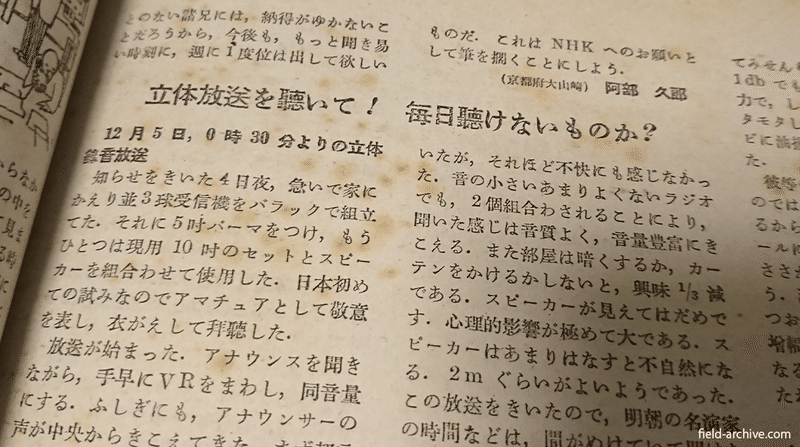 とのない諸兄には，納得がゆかないこ
とだろうから，今後も，もっと聞き易
い時刻に，週に1度位は出して欲しい
ものだ．これは NHK へのお願いと
して筆を擱くことにしよう．
(京都府大山崎) 阿部 久郎
立体放送を聴いて！ 毎日聴けないものか？
12月5日，0時30分よりの立体
録音放送
知らせをきいた4日夜，急いで家に
かえり並3球受信機をバラックで組立
てた．それに5吋パーマをつけ，もう
ひとつは現用 10 吋のセットとスピー
カーを組合わせて使用した．日本初め
ての試みなのでアマチュアとして敬意
を表し，衣がえして拝聴した．
放送が始まった．アナウンスを聞き
ながら，手早にVRをまわし，同音量
にする．ふしぎにも，アナウンサーの
声が中央からきこえてきた．
いたが，それほど不快にも感じなかっ
た．音の小さいあまりよくないラジオ
でも，2個組合わされることにより，
聞いた感じは音質よく，音量豊富にき
こえる．また部屋は暗くするか，カー
テンをかけるかしないと，興味 1/3 減
である．スピーカーが見えてはだめで
す．心理的影響が極めて大である．ス
ピーカーはあまりはなすと不自然にな
る．2m ぐらいがよいようであった．
この放送をきいたので，明朝の名演家
の時間などは，間がぬけていて
てみせん
1db でも
力で，し
タモタし
ビに油
た．
彼等
のでは
るから
ールに
ささか
う．
つお
増幅
なる
たね
らなか
の中を
て見ま
る時
に
field-archive.com